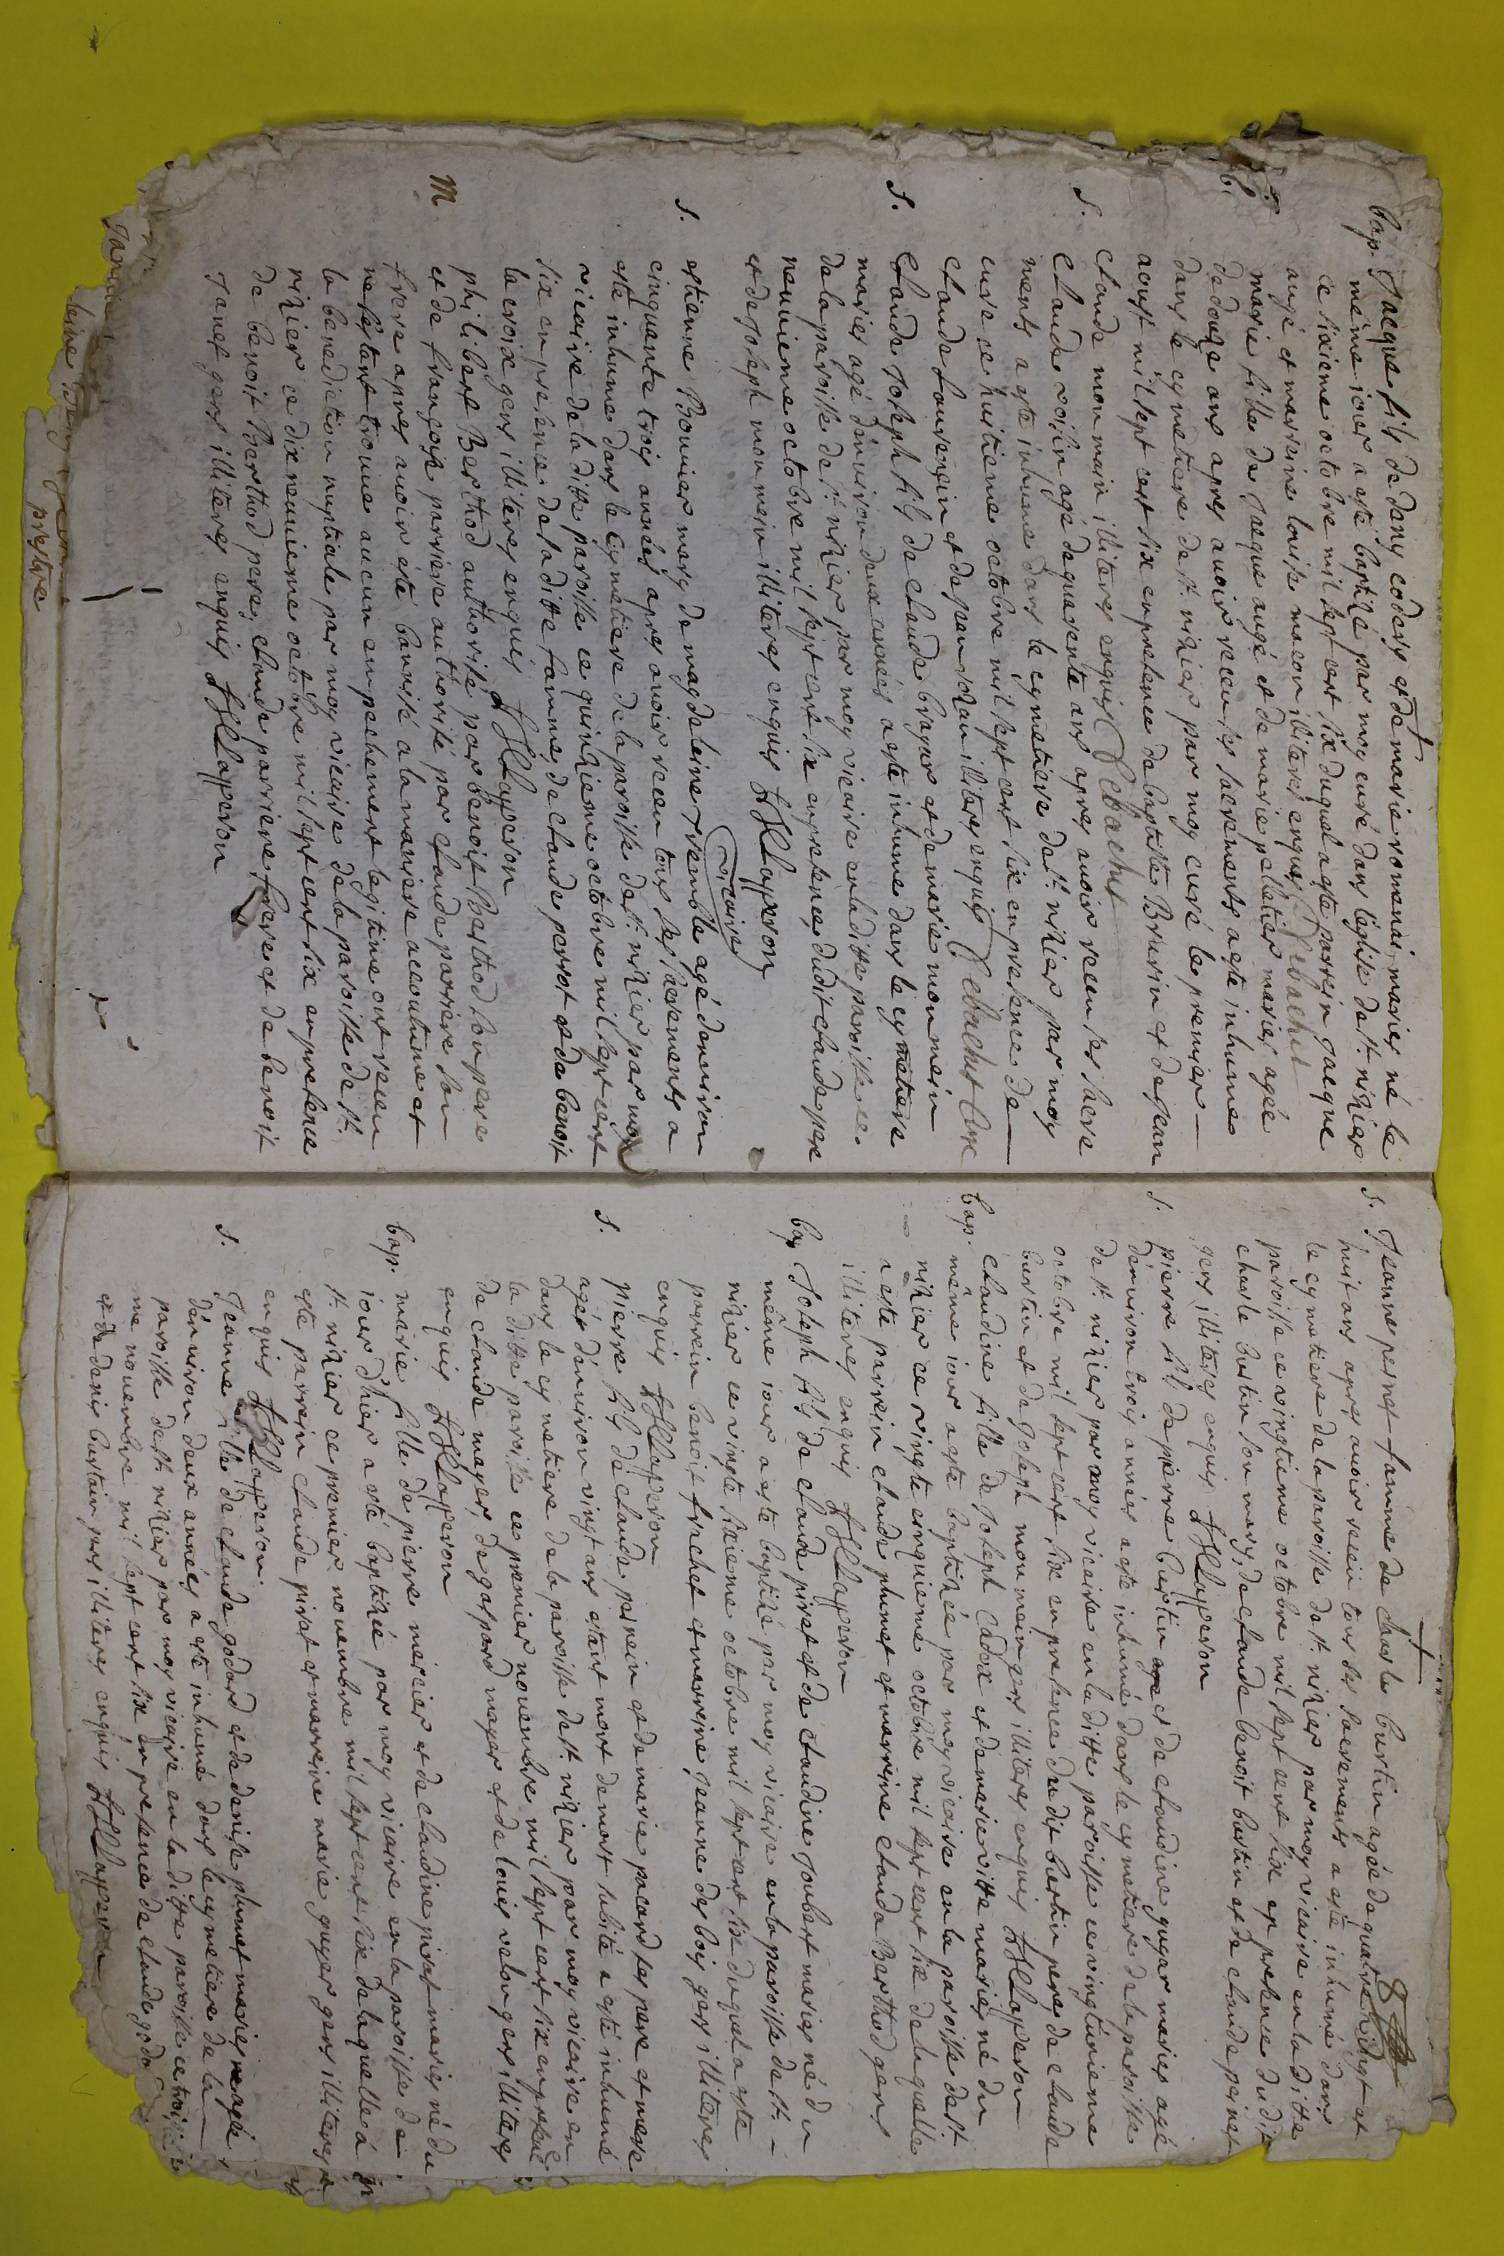 bap. Jacque fils de dany codery et de marie romenai, mariez né le
même iour a esté baptisé par moy curé dans l'église de st. nizier
ce sixieme octobre mil sept cent six duquel a este parrein jacque
augé et marreine louise macon illiteres enquis Debachet
b marie fille de Jaeque augé et de marie pelletier mariez agée
de douze ans apres auoir receu ses sacrements a este inhumee
dans le cymetiere de st. nizier par moy curé le premier
aoust mil sept cent six en presence de baptiste Brurin et de Jean
claude monmain illiteres enquis Debachet
S. claude voisin agé de quarente ans apres auoir receu ses sacre
ments a este inhumé dans le cymetiere de st. nizier par moy
curé ce huitieme octobre mil sept cent six en presence de
claude fourrein et de illiteres enquis Debachet Cure
S. Claude Joseph fils de claude brayer et de marie monmein
mariez agé d'enuiron deux années a este inhumé dans le cymetiere
de la paroisse de st. nizier par moy vicaire en ladite paroisse ce
neuuieme octobre mil sept cent six en presence dudit claude pere
et de Joseph monmein illiteres enquis Layperon
S. estienne Bouuier mary de magdeleine agé denuiron
cinquante trois années apres auoir receu tous ses sacrements a
este inhumé dans le cymetiere de la paroisse de st. nizier par moy
vicaire
vicaire de ladite paroisse ce quinzieme octobre mil sept cent
six en presence de ladite famme, de claude perrot et de benoit
la croix gens illiteres enquis Layperon
M. philibert Berthod authorisé par benoit Berthod son pere
et de françoise parriere authorisé par claude parriere son
frere apres auoir este bannis a la maniere accoutumé et
ne s'etant trouué aucun enpechement legitime ont receu
la benediction nuptiale par moy vicaire de la paroisse de st.
nizier ce dix neuuieme octobre mil sept cent six en presence
de benoit Berthod pere, claude parriere frere et de benoit
Janet gens illiteres enquis Layperon
prestre
S. Jeanne perret famme de charle burtin agée de quatre vingt et
huit ans apres auoir receu tous ses sacrements a este inhumé dans
le cymetiere de la paroisse de st. nizier par moy vicaire en ladite
paroisse ce vingtieme octobre mil sept cent six en presence dudit
charle burtin son mary, de claude benoit burtin et de claude perret
gens illiteres enquis Layperon
S. pierre fils de pierre burtin et de claudine gugar mariez agé
denuiron trois années a este inhumé dans le cymetiere de la paroisse
de st. nizier par moy vicaire en ladite paroisse ce vingtunieme
octobre mil sept cent six en presence dudit burtin pere, de claude
burtin et de Joseph monmein gens illiteres enquis Layperon
bap. claudine fille de Joseph Cadox et de marie vitte mariez né du
même iour a este baptisée par moy vicaire en la paroisse de st
nizier ce vingte cinquieme octobre mil sept cent six de laquelle
a este parrein claude plumet et marreine clauda Berthod gens
illiteres enquis Layperon
bap Joseph fils de claude pirat et de claudine Joubert mariez né du
même iour a este baptisé par moy vicaire en la paroisse de st.
nizier ce vingte sixieme octobre mil sept cent six duquel a este
parrein benoit frechet et marreine Jeanne des bois gens illiteres
enquis Layperon
S. pierre fils de claude perrein et de marie pacard ses pere et mere
agé denuiron vingt ans estant mort de mort subite a esté inhumé
dans le cymetiere de la paroisse de st. nizier par moy vicaire en
la ditte paroisse ce premier nouembre mil sept cent six en presence
de claude mayer, de gaspard mayer et de louis velon gens illiteres
enquis Layperon
bap. marie fille de pierre mercier et de claudine pirat mariez né du
iour d'hier a esté baptisée par moy vicaire en la paroisse de
st. nizier ce premier nouembre mil sept cent six de laquelle à
este parrein claude pirat et marreine marie guyer gens illiteres
enquis Layperon
S. Jeanne fille de claude godard et de denise plumet mariez agée
denuiron deux années a este inhumé dans le cymetiere de la
paroisse de st. nizier par moy vicaire en la ditte paroisse ce troisie
me nouembre mil sept cent six en presence de claude goda
et de denis burtain gens illiteres enquis Layperon